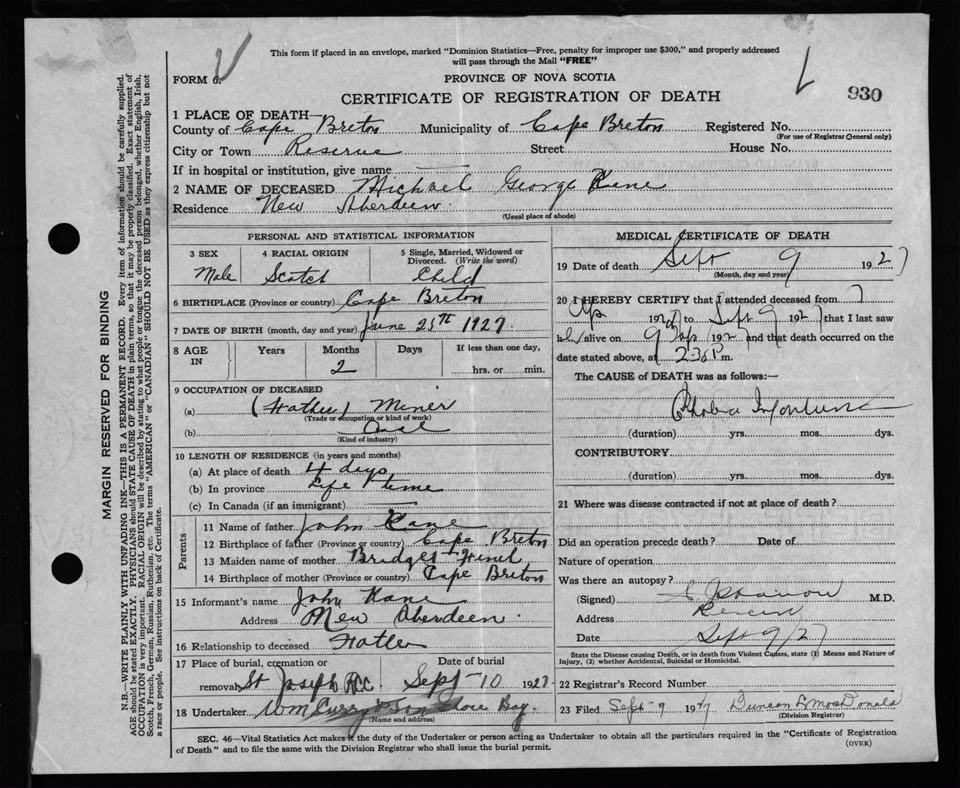 This form if placed in an envelope, marked "Dominion Statistics—Free, penalty for improper use $300," and properly addressed
will pass through the Mail "FREE"
FORM 6.
PROVINCE OF NOVA SCOTIA
930
CERTIFICATE OF REGISTRATION OF DEATH
1 PLACE OF DEATH—
County of Cape Breton Municipality of Cape Breton Registered No.
(For use of Registrar General only)
City or Town Reserve Street House No.
If in hospital or institution, give name
2 NAME OF DECEASED Michael George Kane
Residence New Aberdeen
(Usual place of abode)
PERSONAL AND STATISTICAL INFORMATION
3 SEX 4 RACIAL ORIGIN 5 Single, Married, Widowed or Divorced. (Write the word)
Male Scotch Child
6 BIRTHPLACE (Province or country) Cape Breton
7 DATE OF BIRTH (month, day and year) June 25th 1927
8 AGE IN Years Months Days If less than one day,
2 hrs. or min.
9 OCCUPATION OF DECEASED
(a) (Father) Miner
(Trade or occupation or kind of work)
(b)
(Kind of industry)
10 LENGTH OF RESIDENCE (in years and months)
(a) At place of death 4 days
(b) In province Life time
(c) In Canada (if an immigrant)
Parents
11 Name of father John Kane
12 Birthplace of father (Province or country) Cape Breton
13 Maiden name of mother Bridget French
14 Birthplace of mother (Province or country) Cape Breton
15 Informant's name John Kane
Address New Aberdeen
16 Relationship to deceased Father
17 Place of burial, cremation or Date of burial
removal St Joseph RCC Sept 10 1927
18 Undertaker Wm Curry & Son Glace Bay
(Name and address)
MEDICAL CERTIFICATE OF DEATH
19 Date of death Sept 9 1927
(Month, day and year)
20 I HEREBY CERTIFY that I attended deceased from
1927 to Sept 9 1927 that I last saw
alive on 9 Sep 1927 and that death occurred on the
date stated above, at 230 P m.
The CAUSE of DEATH was as follows:—
Cholera Infantum
(duration) yrs. mos. dys.
CONTRIBUTORY
(duration) yrs. mos. dys.
21 Where was disease contracted if not at place of death?
Did an operation precede death? Date of
Nature of operation
Was there an autopsy?
(Signed) M.D.
Address Reserve
Date Sept 9/27
State the Disease causing Death, or in death from Violent Causes, state (1) Means and Nature of
Injury, (2) whether Accidental, Suicidal or Homicidal.
22 Registrar's Record Number
23 Filed Sept 9 1927 Duncan MacDonald
(Division Registrar)
SEC. 46—Vital Statistics Act makes it the duty of the Undertaker or person acting as Undertaker to obtain all the particulars required in the "Certificate of Registration
of Death" and to file the same with the Division Registrar who shall issue the burial permit.
(OVER)
MARGIN RESERVED FOR BINDING
N.B.—WRITE PLAINLY WITH UNFADING INK—THIS IS A PERMANENT RECORD. Every item of information should be carefully supplied.
AGE should be stated EXACTLY. PHYSICIANS should STATE CAUSE OF DEATH in plain terms, so that it may be properly classified. Exact statement of
OCCUPATION is very important. RACIAL ORIGIN will be described by stating to what people or tongue the deceased person belonged, whether English, Irish,
Scotch, French, German, Russian, Ruthenian, etc. The terms "AMERICAN" or "CANADIAN" SHOULD NOT BE USED as they express citizenship but not
a race or people. See instructions on back of Certificate.